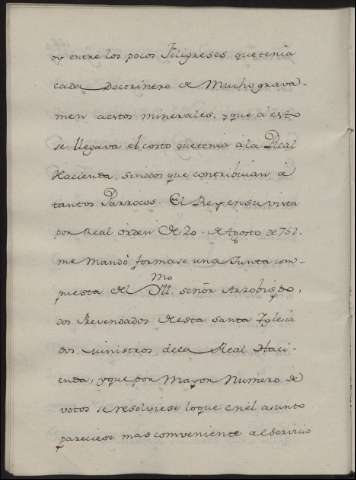 oy entre los pocos Feligreses, que tenia
cada Doctrinero de Mucho grava-
men a estos minerales, y que á esto
se llegava el costo que tenia á la Real
Hacienda, sinodos que contribuian á
tantos Parrocos. El Rey en su vista
por Real orden de 20. de Agosto de 751.
me Mandó formase una Junta com-
puesta del Ill.mo señor Arzobispo,
dos Revendados de esta santa Iglesia
dos Ministros de la Real Haci-
enda, y que por Mayor Numero de
votos se resolviese lo que en el asunto
pareciese mas comveniente al servicio